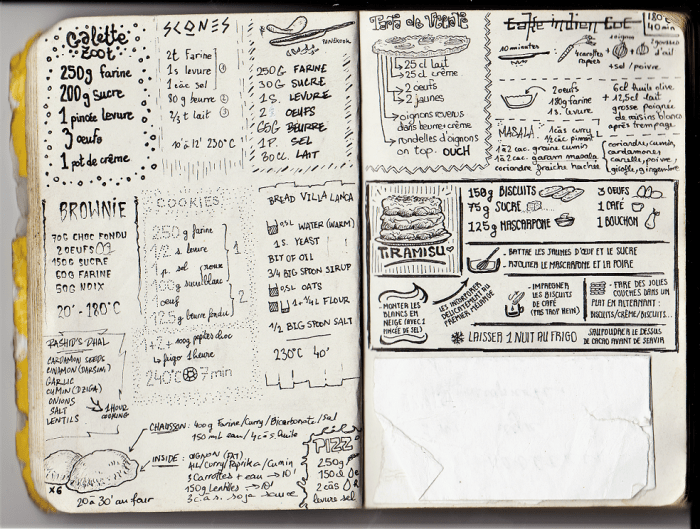 Galette
Zoot
250g farine
200g sucre
1 pincée levure
3 oeufs
1 pot de crème
SCONES
2t Farine
1s levure
1 càc sel
80g beurre
2/3 t lait
10 à 12' 230°C
250G FARINE
30G SUCRE
1S. LEVURE
2 OEUFS
65G BEURRE
1P. SEL
30CL. LAIT
BROWNIE
70G CHOC FONDU
2 OEUFS
150G SUCRE
60G FARINE
50G NOIX
20' - 180°C
COOKIES
250g farine
1/2 s. levure
1 p. sel
100g sucre blanc
1 oeuf
125g beurre fondu
1
2
1+2+ 100g pépites choc
↳ frigo 1 heure
240°C 7min
BREAD VILLA LANCA
0,5L WATER (WARM)
1 S. YEAST
BIT OF OIL
3/4 BIG SPOON SIRUP
0,5L OATS
1+1/4L FLOUR
1/2 BIG SPOON SALT
230°C 40'
RASHID'S DHAL
CARDAMON SEEDS
CINAMON (DARSIM)
GARLIC
CUMIN (DZIGA)
ONIONS
SALT
LENTILS
1 HOUR
COOKING
CHAUSSON: 400g Farine/Curry/Bicarbonate/Sel
150 ml eau/4 càs huile
INSIDE: OIGNON
Ail/Curry/Paprika/Cumin
3 Carottes + eau → 10'
150g lentilles → 10'
3 c.à.s. soja sauce
x6
20 à 30' au four
PIZZ
250g
150cl
2 càs
levure sel
Tarte de Vegeta
25 cl lait
25 cl crème
2 oeufs
2 jaunes
oignons revenus
dans beurre crème
rondelles d'oignons
on top. OUCH
Cake indien Coc
180°C
40 min
10 minutes
4 carottes
rapées
oignon
gousses
d'ail
+ sel/poivre
2 oeufs
180g farine
1s. levure
6cl huile olive
+ 12,5cl lait
grosse poignée
de raisins blancs
après trempage
MASALA
1 càs curry
1/2 càc piment
1 à 2 càc. graine cumin
1 à 2 cac. garam masala
coriandre fraîche hachée
coriandre, cumin,
cardamone,
canelle, poivre,
girofle, gingembre
TIRAMISU
150g BISCUITS
75g SUCRE
125g MASCARPONE
3 OEUFS
1 CAFÉ
1 BOUCHON
- BATTRE LES JAUNES D'OEUF ET LE SUCRE
- AJOUTER LE MASCARPONE ET LA POIRE
- MONTER LES
BLANCS EN
NEIGE (AVEC 1
PINCÉE DE SEL)
- LES INCORPORER
DELICATEMENT AU
PREMIER MÉLANGE
- IMPREGNER
LES BISCUITS
DE CAFÉ
(PAS TROP HEIN)
- FAIRE DES JOLIES
COUCHES DANS UN
PLAT EN ALTERNANT:
BISCUITS/CRÈME/BISCUITS...
LAISSER 1 NUIT AU FRIGO
SAUPOUDRER LE DESSUS
DE CACAO AVANT DE SERVIR